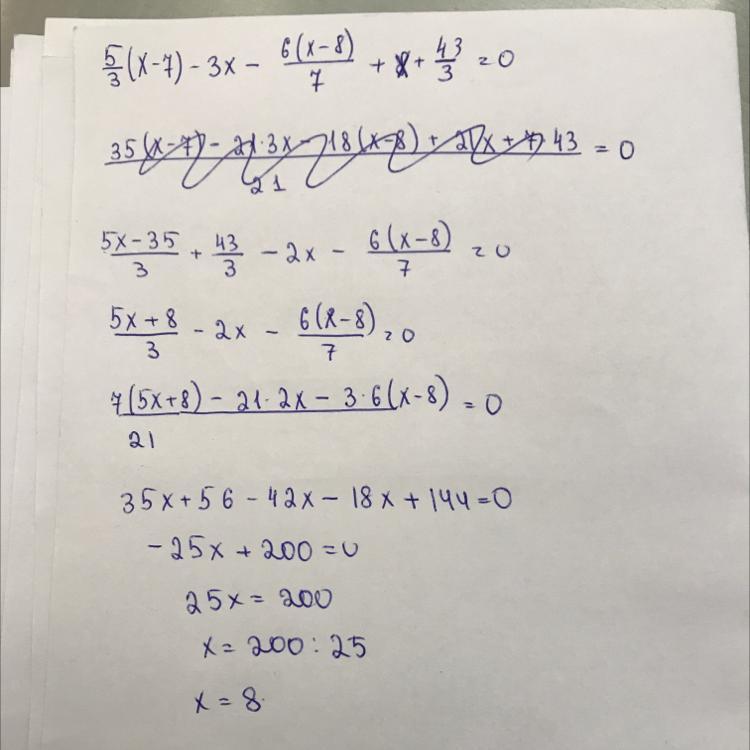 5/3 (x-7) - 3x - 6(x-8)/7 + x + 43/3 = 0
35(x-7) - 21·3x - 18(x-8) + 21x + 7·43 / 21 = 0
5x-35/3 + 43/3 - 2x - 6(x-8)/7 = 0
5x+8/3 - 2x - 6(x-8)/7 = 0
7(5x+8) - 21·2x - 3·6(x-8) / 21 = 0
35x+56 - 42x - 18x + 144 = 0
-25x + 200 = 0
25x = 200
x = 200 : 25
x = 8